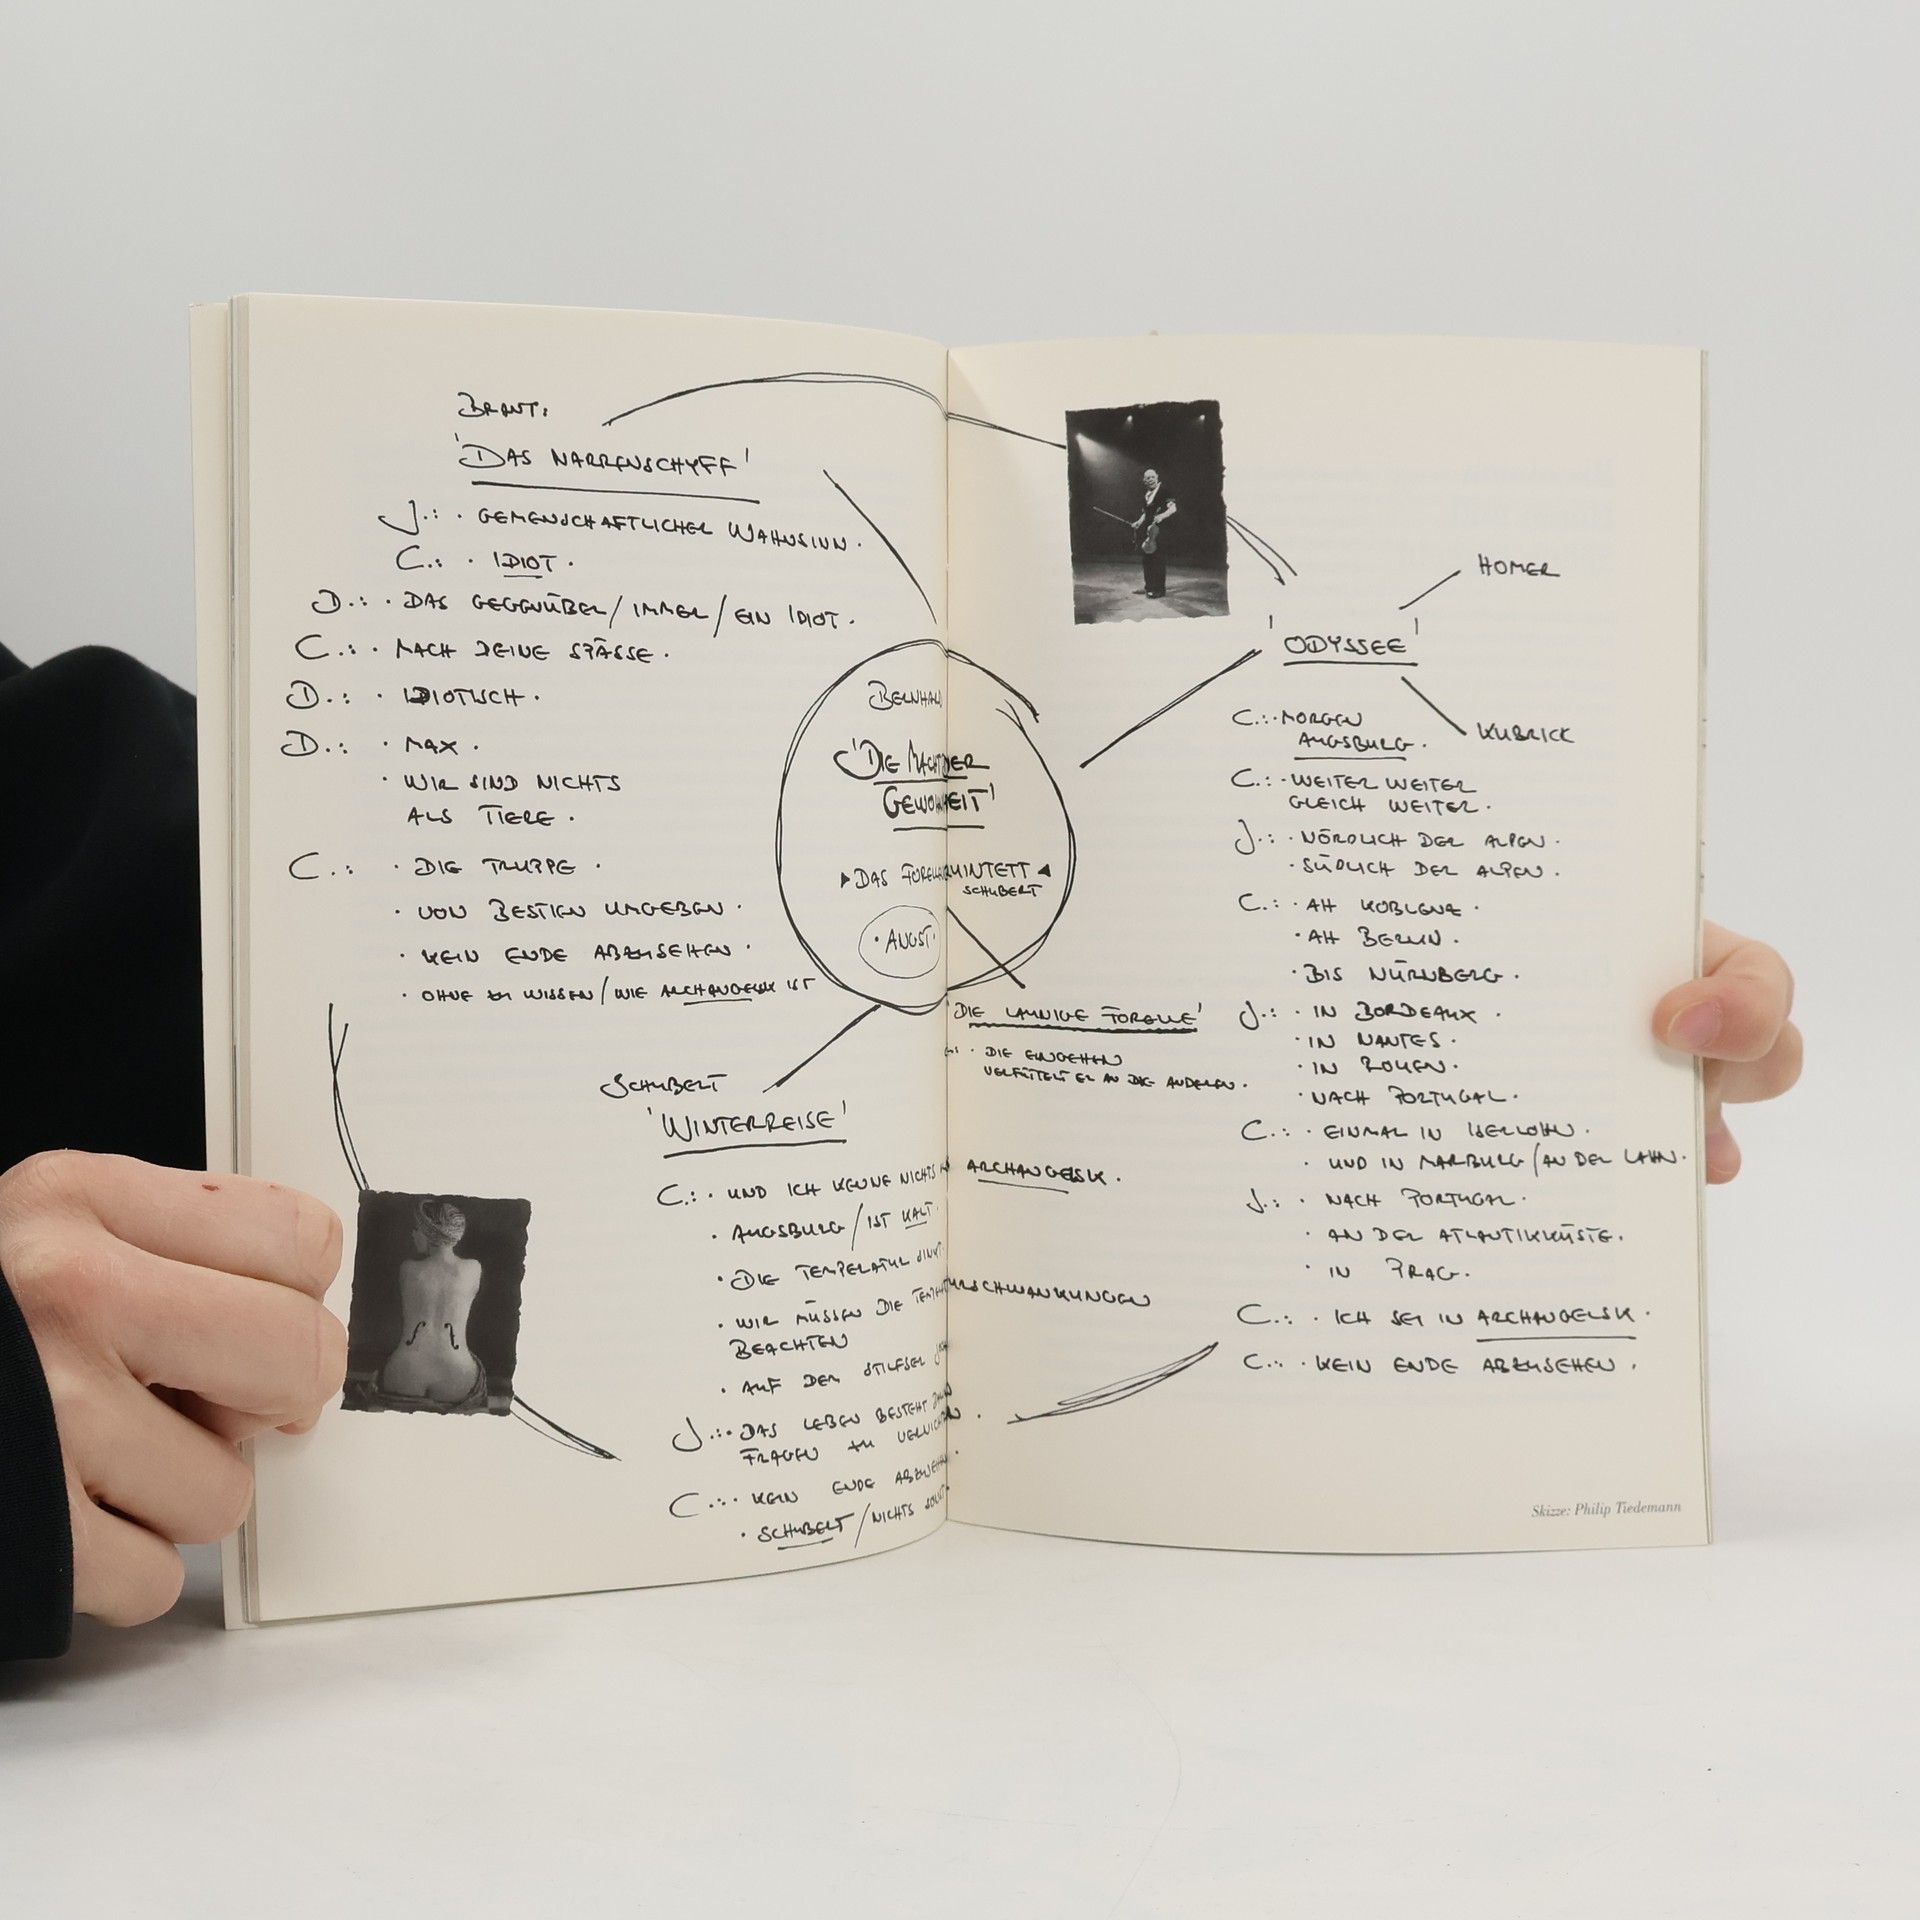 BRANT:
'DAS NARRENSCHYFF'
J.: · GEMENSCHAFTLICHER WAHNSINN ·
C.: · IDIOT ·
D.: · DAS GEGENÜBER / IMMER / EIN IDIOT ·
C.: · MACH DEINE SPÄSSE ·
D.: · IDIOTISCH ·
D.: · MAX ·
· WIR SIND NICHTS
ALS TIERE ·
C.: · DIE TRUPPE ·
· VON BESTIEN UMGEBEN ·
· KEIN ENDE ABZUSEHEN ·
· OHNE ZU WISSEN / WIE ARCHANGELSK IST
BERNHARD
'DIE MACHT DER
GEWOHNHEIT'
▸ DAS FORELLENQUINTETT ◂
SCHUBERT
· ANGST ·
SCHUBERT
'WINTERREISE'
C.: · UND ICH KENNE NICHTS IN ARCHANGELSK ·
· AUGSBURG / IST KALT ·
· DIE TEMPERATUR SINKT ·
· WIR MÜSSEN DIE TEMPERATURSCHWANKUNGEN
BEACHTEN
· AUF DEM STILFSER JOCH
J.: · DAS LEBEN BESTEHT DARIN
FRAGEN ZU VERNICHTEN ·
C.: · KEIN ENDE ABZUSEHEN ·
· SCHUBERT / NICHTS SONST ·
'DIE LAUNIGE FORELLE'
· DIE EINGEHEN
VERFÜTTERT ER AN DIE ANDEREN ·
HOMER
'ODYSSEE'
KUBRICK
C.: · MORGEN
AUGSBURG ·
C.: · WEITER WEITER
GLEICH WEITER ·
J.: · NÖRDLICH DER ALPEN ·
· SÜDLICH DER ALPEN ·
C.: · AH KOBLENZ ·
· AH BERLIN ·
· BIS NÜRNBERG ·
J.: · IN BORDEAUX ·
· IN NANTES ·
· IN ROUEN ·
· NACH PORTUGAL ·
C.: · EINMAL IN ISERLOHN ·
· UND IN MARBURG / AN DER LAHN ·
J.: · NACH PORTUGAL ·
· AN DER ATLANTIKKÜSTE ·
· IN PRAG ·
C.: · ICH SEI IN ARCHANGELSK ·
C.: · KEIN ENDE ABZUSEHEN ·
Skizze: Philip Tiedemann